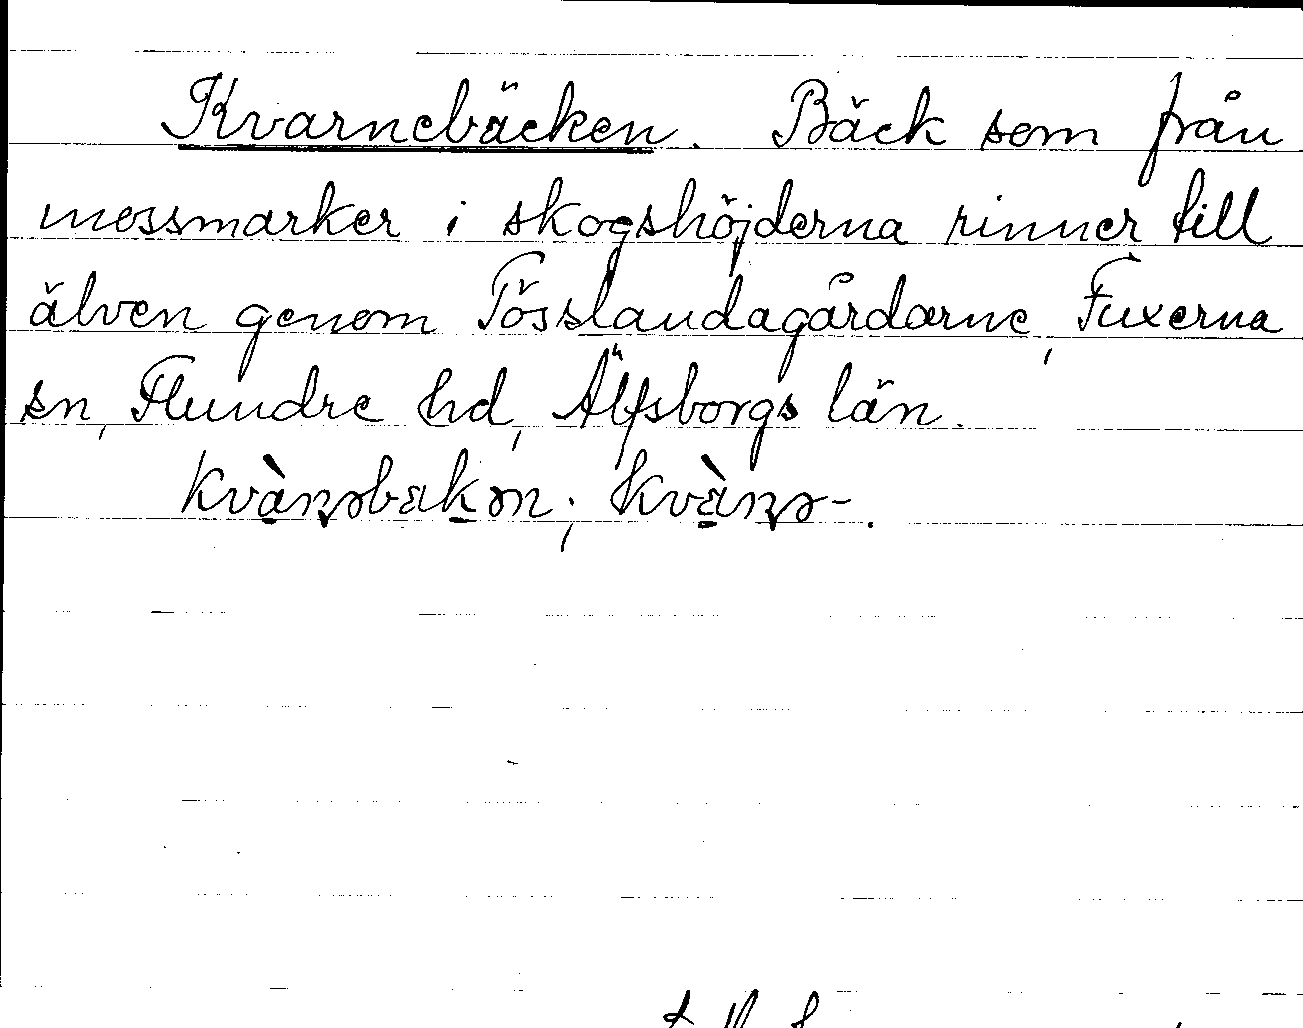 Kvarnebäcken. Bäck som från
mossmarker i skogshöjderna rinner till
älven genom Tösslandagårdarne, Fuxerna
sn, Flundre hd, Älfsborgs län.